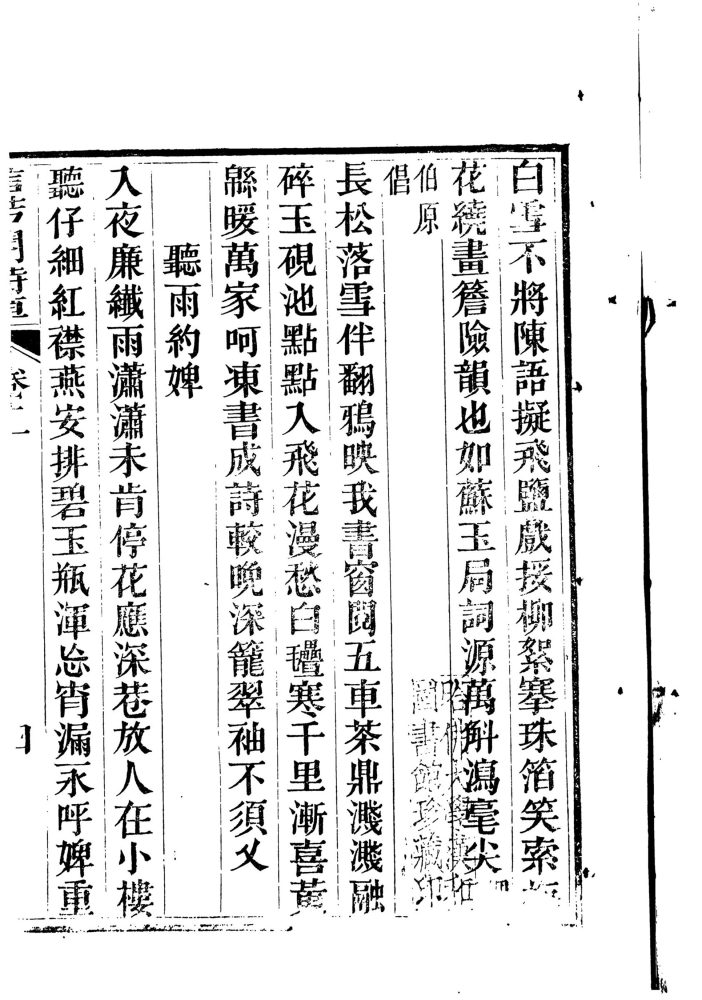 白雪不將陳語擬飛鹽戲挼柳絮搴珠箔笑索
花繞畫簷險韻也如蘇玉局詞源萬斛瀉毫尖
伯原
倡
長松落雪伴翻鴉映我書窗閱五車茶鼎濺濺融
碎玉硯池點點入飛花漫愁白氎寒千里漸喜黃
緜暖萬家呵凍書成詩較晚深籠翠袖不須叉
聽雨約婢
入夜廉纖雨瀟瀟未肯停花應深巷放人在小樓
聽仔細紅襟燕安排碧玉瓶渾忘宵漏永呼婢重
圖書館珍藏印